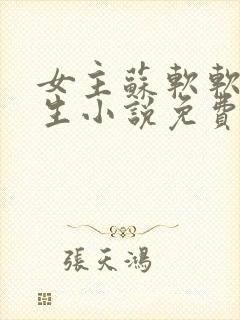 女主蘇軟軟
生小說免費
張天鴻